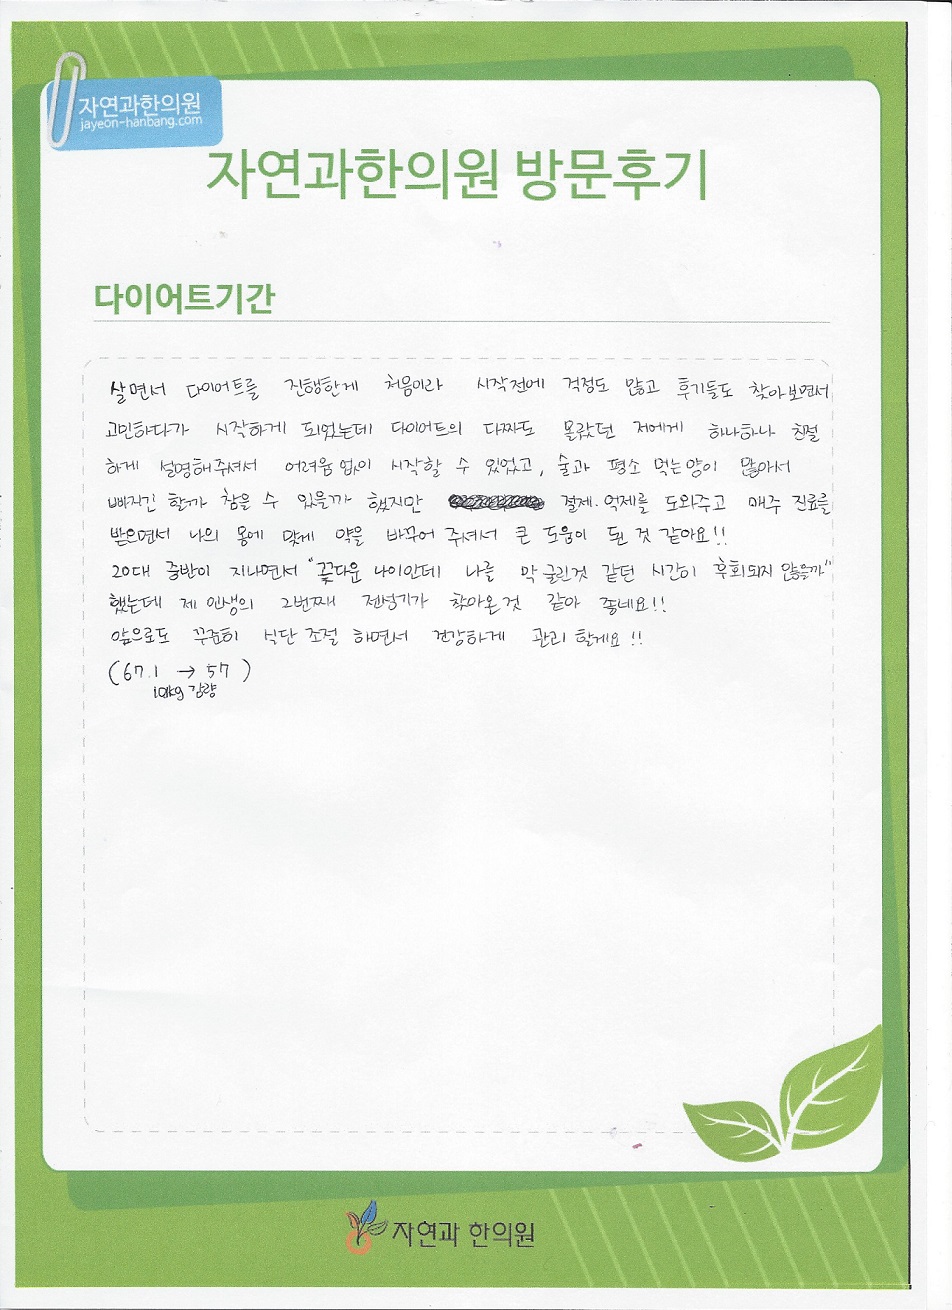 자연과한의원
jayeon-hanbang.com
자연과한의원 방문후기
다이어트기간
살면서 다이어트를 진행한게 처음이라 시작전에 걱정도 많고 후기들도 찾아보면서
고민하다가 시작하게 되었는데 다이어트의 다짜도 몰랐던 저에게 하나하나 친절
하게 설명해주셔서 어려움없이 시작할 수 있었고, 술과 평소 먹는양이 많아서
빠지긴 할까 참을 수 있을까 했지만 절제·억제를 도와주고 매주 진료를
받으면서 나의 몸에 맞게 약을 바꾸어 주셔서 큰 도움이 된 것 같아요!!
20대 중반이 지나면서 "꽃다운 나이인데 나를 막 굴린것 같던 시간이 후회되지 않을까"
했는데 제 인생의 2번째 전성기가 찾아온것 같아 좋네요!!
앞으로도 꾸준히 식단 조절 하면서 건강하게 관리 할게요!!
(67.1 → 57)
10kg 감량
자연과 한의원